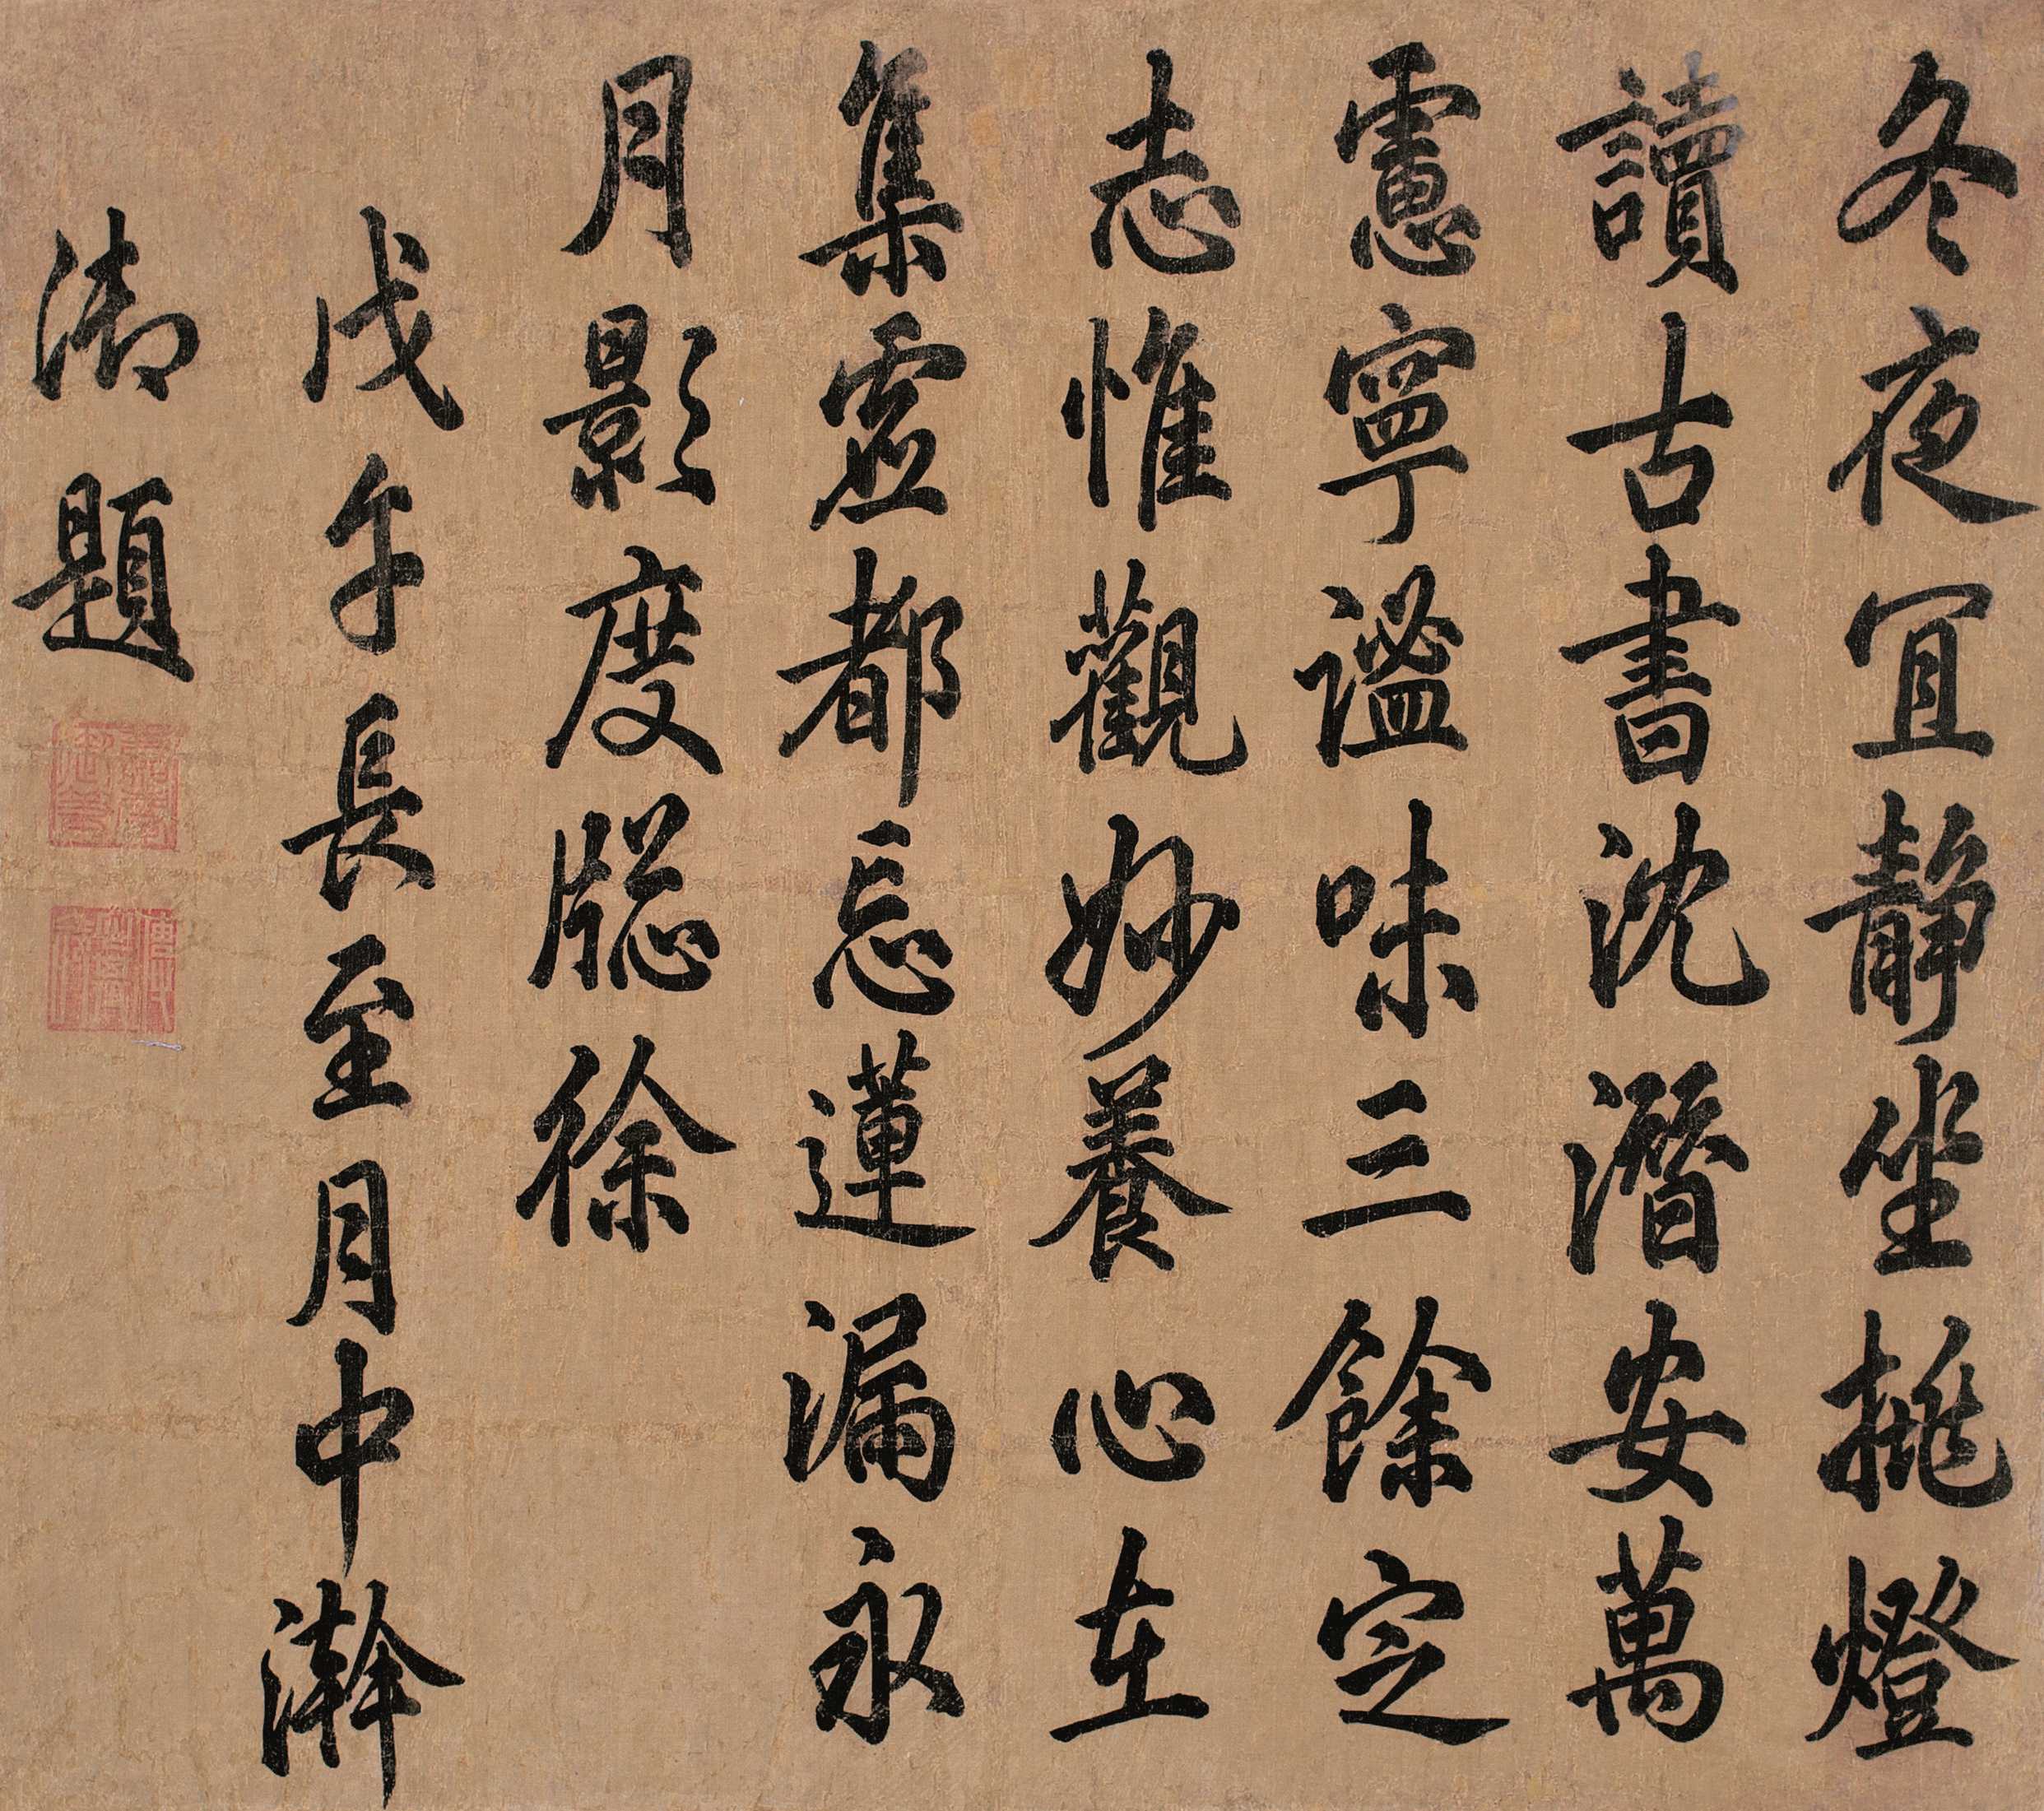 冬夜宜靜坐挑燈
讀古書沈潛安萬
慮寧謐味三餘定
志惟觀妙養心在
集虛都忘蓮漏永
月影度牕徐
戊午長至月中澣
御題